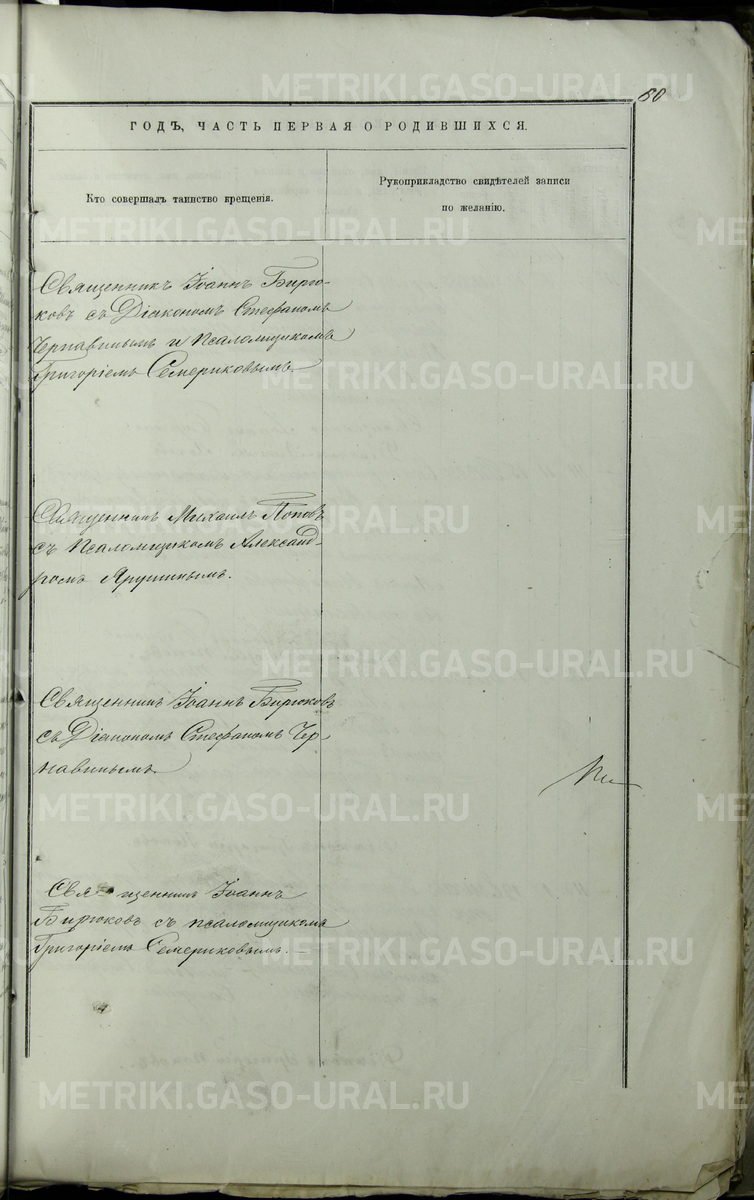 METRIKI.GASO-URAL.RU
60
ГОДЪ, ЧАСТЬ ПЕРВАЯ О РОДИВШИХСЯ.
Кто совершалъ таинство крещенія.
Рукоприкладство свидѣтелей записи
по желанію.
Священникъ Іоаннъ Бирю-
ковъ съ Діакономъ Стефаномъ
Чернавинымъ и Псаломщикомъ
Григоріемъ Семериковымъ.
Священникъ Михаилъ Поповъ
съ Псаломщикомъ Александ-
ромъ Ярушинымъ.
Священникъ Іоаннъ Бирюковъ
съ Діакономъ Стефаномъ Чер-
навинымъ.
Священникъ Іоаннъ
Бирюковъ съ псаломщикомъ
Григоріемъ Семериковымъ.